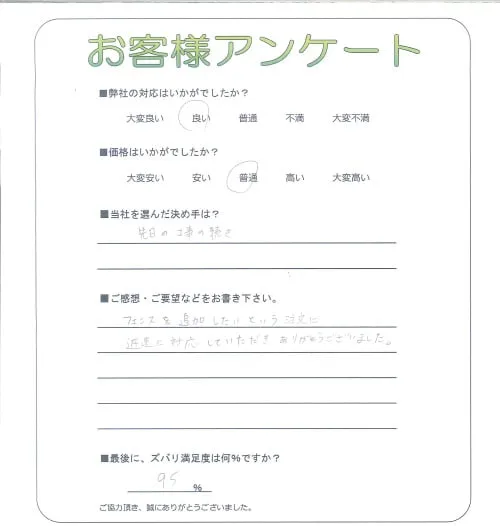 お客様アンケート
■弊社の対応はいかがでしたか？
大変良い 良い 普通 不満 大変不満
■価格はいかがでしたか？
大変安い 安い 普通 高い 大変高い
■当社を選んだ決め手は？
先日の工事の続き
■ご感想・ご要望などをお書き下さい。
フェンスを追加したいという注文に
迅速に対応していただきありがとうございました。
■最後に、ズバリ満足度は何％ですか？
95 ％
ご協力頂き、誠にありがとうございました。